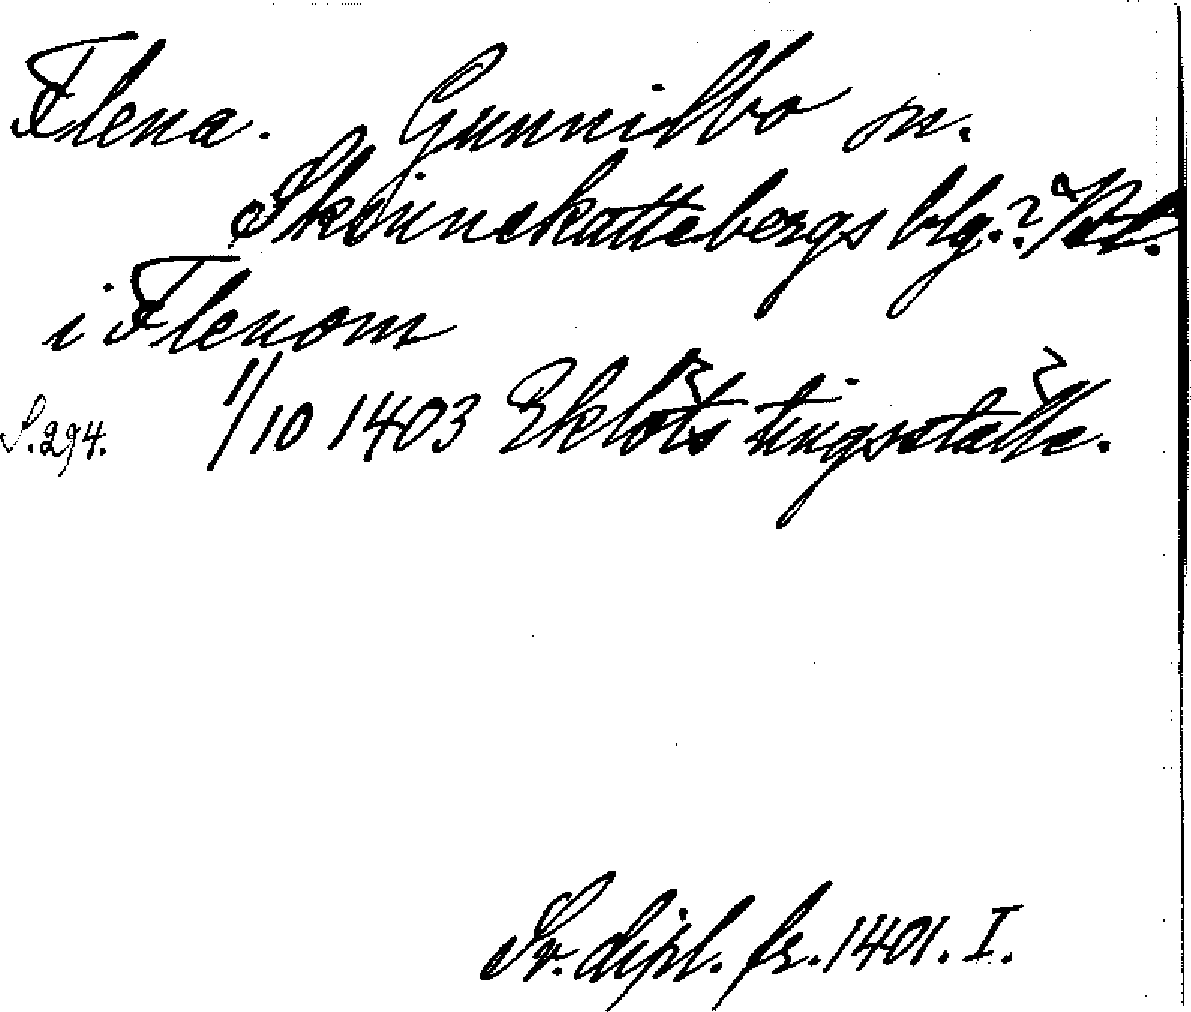 Flena. Gunnilbo sn.
Skinnskattebergs blg.? Vstm.
i Flenom
S. 294. 1/10 1403 Ekløts tingställe.
Sv. dipl. fr. 1401. I.